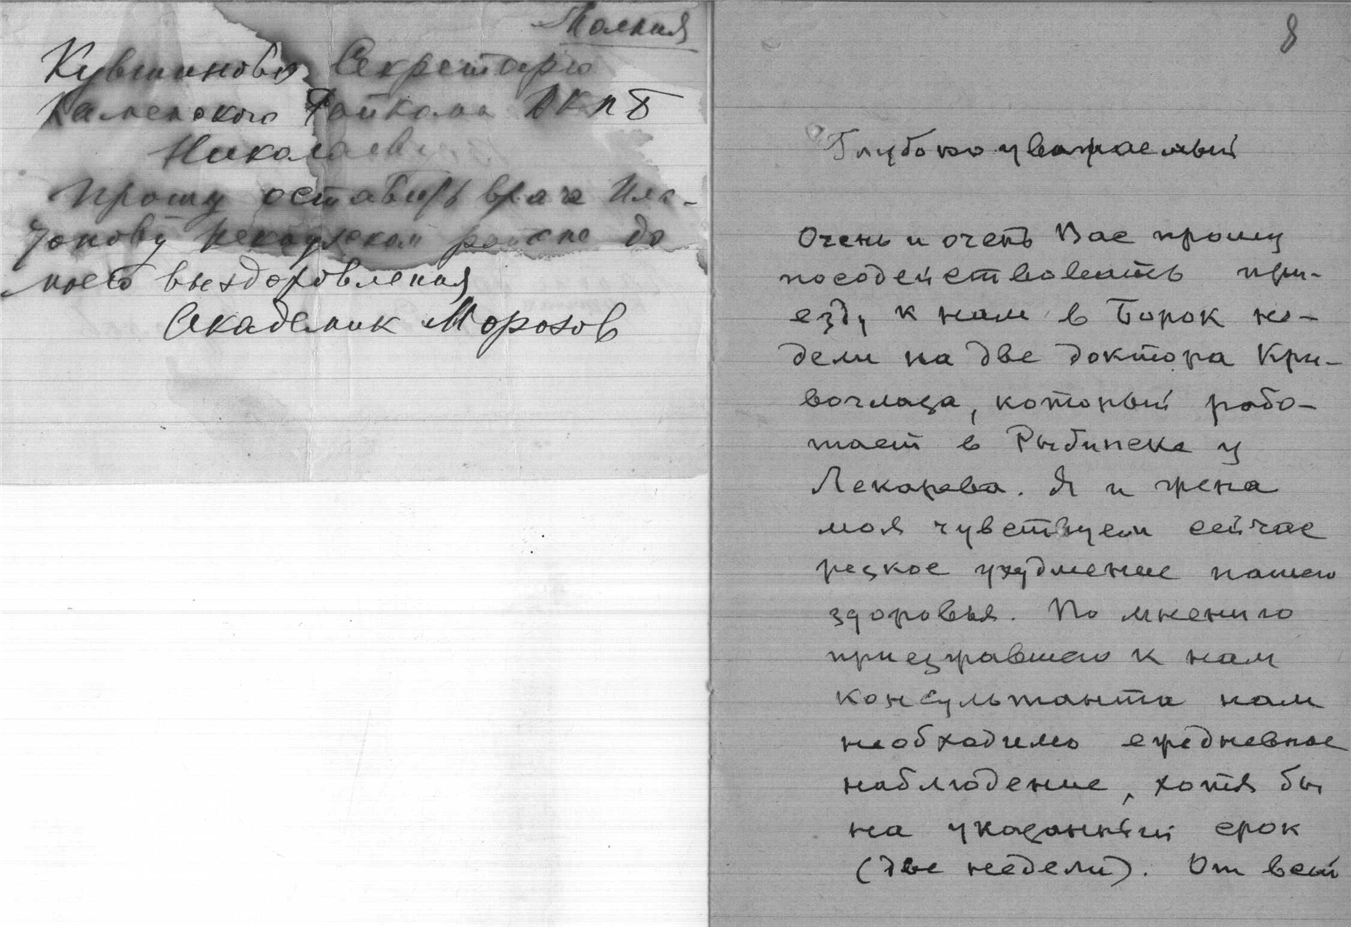 Молния
Кувшиново Секретарю
Каменского Райкома ВКПБ
Николаеву
Прошу оставить врача
районе до
моего выздоровления
Академик Морозов
8
Глубокоуважаемый
Очень и очень Вас прошу
посодействовать при-
езду к нам в Борок не-
дели на две доктора Кри-
воглаза, который рабо-
тает в Рыбинске у
Лекарева. Я и жена
моя чувствуем сейчас
резкое ухудшение нашего
здоровья. По мнению
приезжавшего к нам
консультанта нам
необходимо ежедневное
наблюдение, хотя бы
на указанный срок
(две недели). От всей